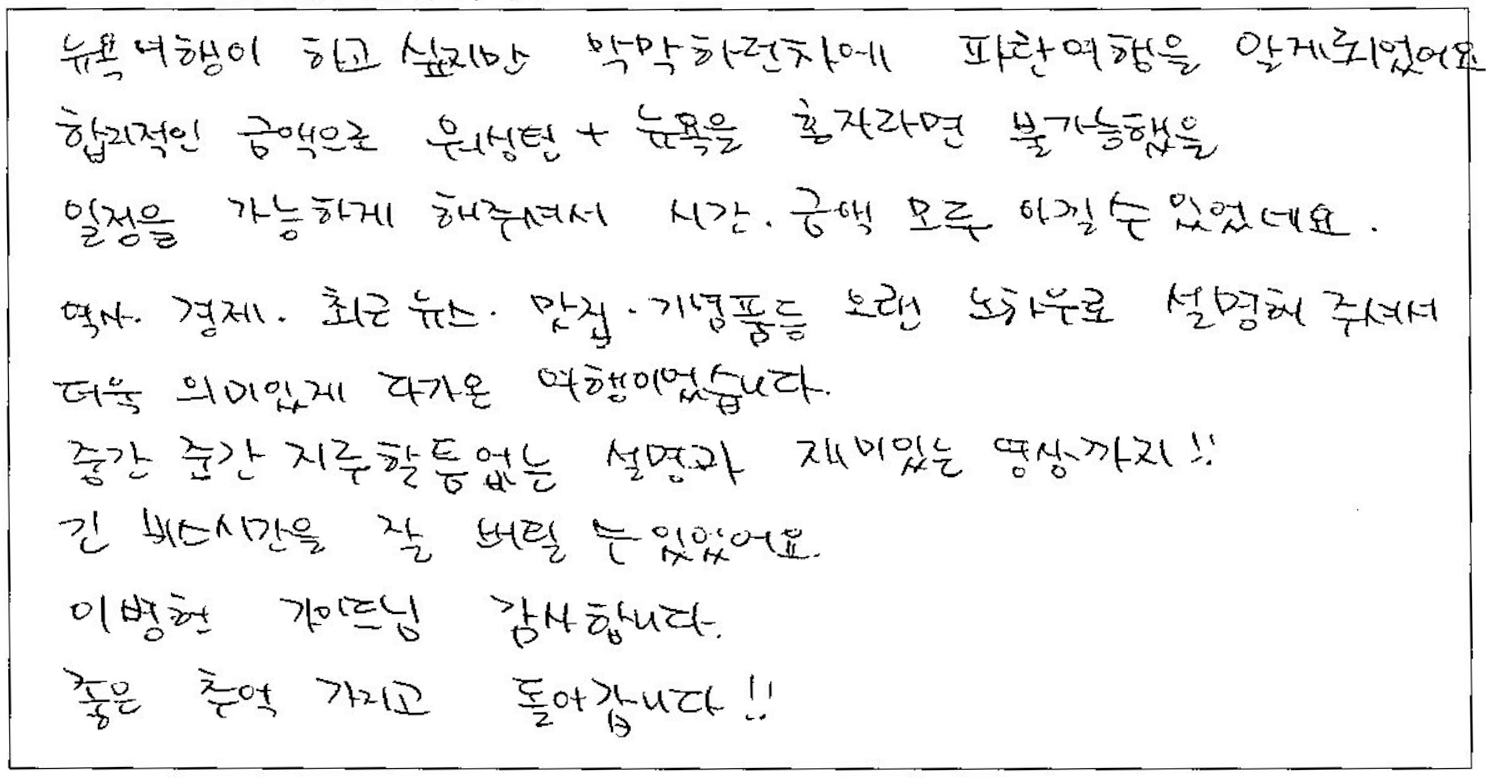 뉴욕여행이 하고 싶지만 막막하던차에 파란여행을 알게되었어요
합리적인 금액으로 워싱턴 + 뉴욕을 혼자라면 불가능했을
일정을 가능하게 해주셔서 시간. 금액 모두 아낄 수 있었네요.
역사. 경제. 최근 뉴스. 맛집. 기념품등 오랜 노하우로 설명해 주셔서
더욱 의미있게 다가온 여행이었습니다.
중간 중간 지루할틈없는 설명과 재미있는 영상까지!!
긴 버스시간을 잘 버틸 수 있었어요.
이병헌 가이드님 감사합니다.
좋은 추억 가지고 돌아갑니다!!